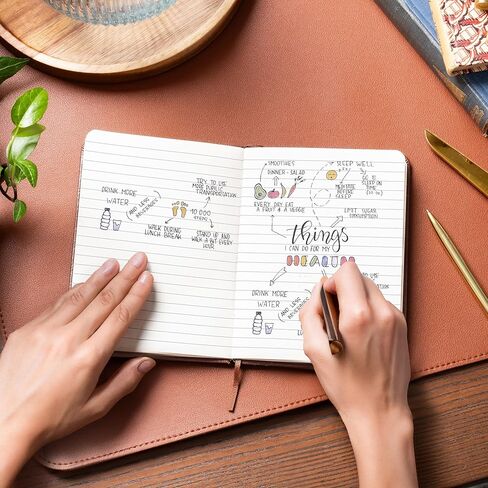 DRINK MORE
WATER
(AND LESS
BEVERAGES)
TRY TO USE
MORE PUBLIC
TRANSPORTATION
10 000
STEPS
WALK DURING
LUNCH BREAK
STAND UP AND
WALK A BIT EVERY
HOUR
SMOOTHIES
DINNER - SALAD
EVERY DAY EAT
A FRUIT & A VEGGIE
SLEEP WELL
MEDITATE
BEFORE
SLEEP
GO
TO SLEEP
ON TIME
LIMIT SUGAR
CONSUMPTION
things
I CAN DO FOR MY
HEALTH
DRINK MORE
WATER
(AND LESS
BEVERAGES)
TO USE